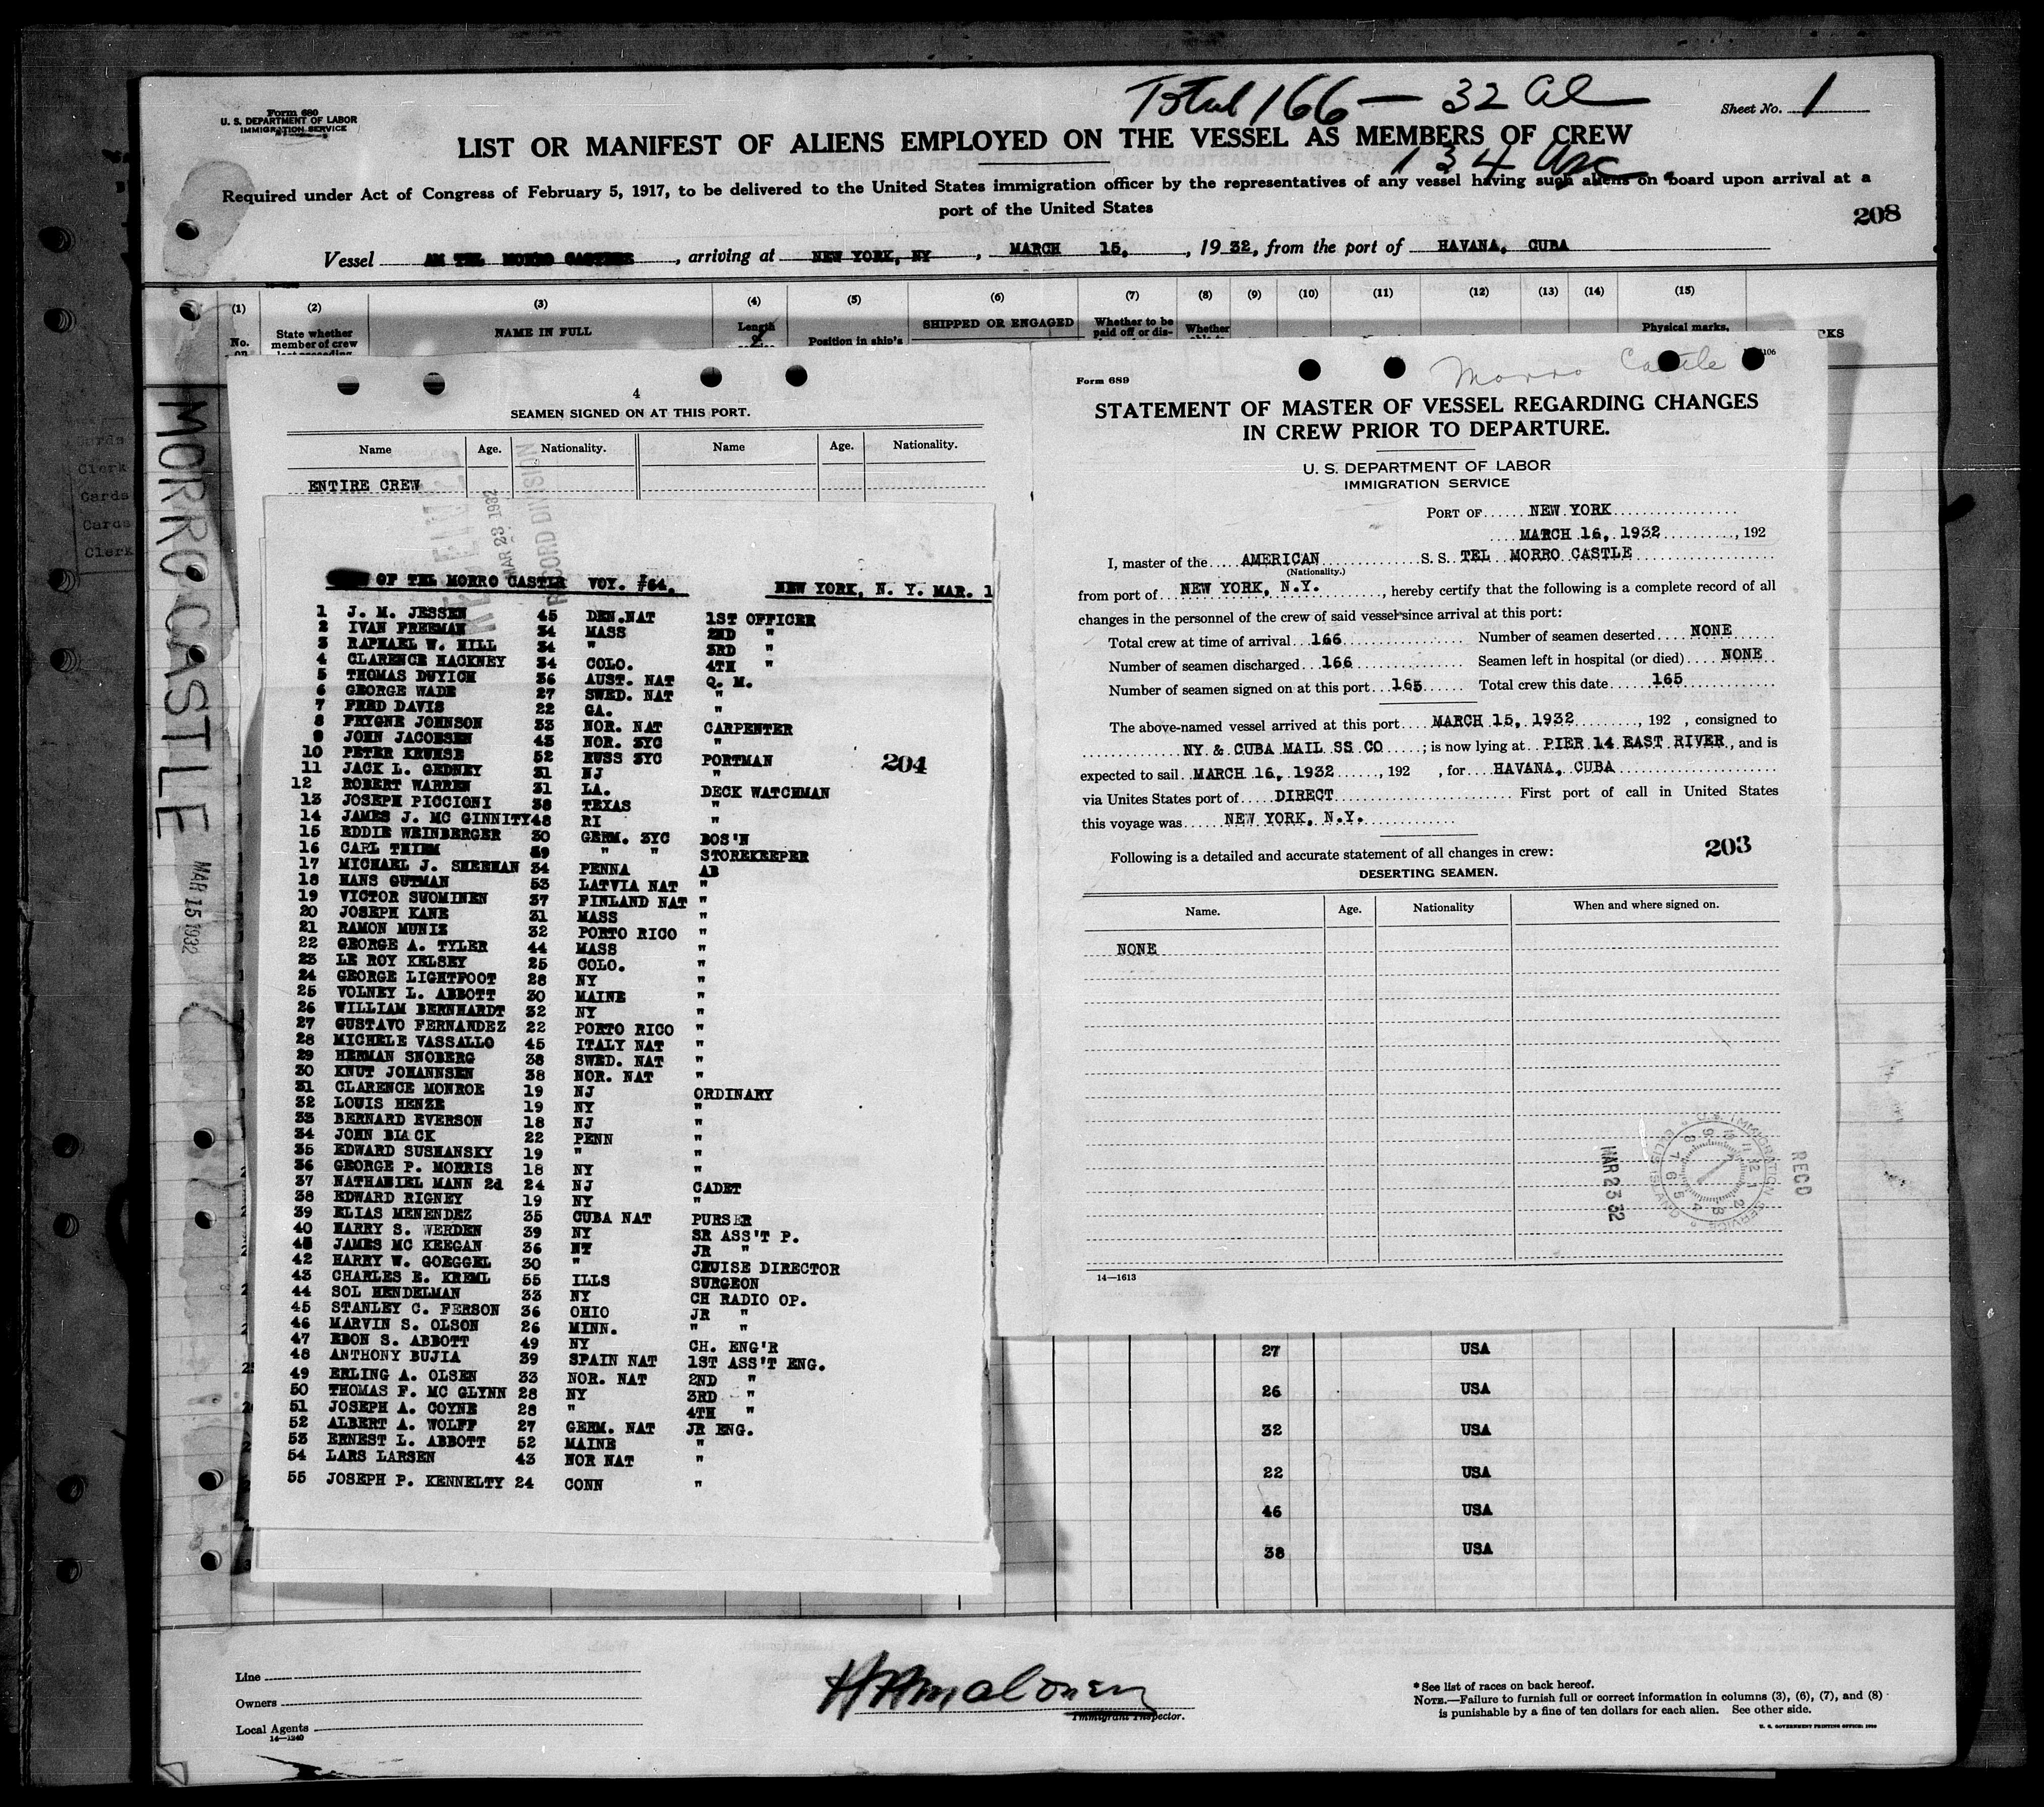 Total 166 — 32 al
Form 680
U. S. DEPARTMENT OF LABOR
IMMIGRATION SERVICE
Sheet No. 1
LIST OR MANIFEST OF ALIENS EMPLOYED ON THE VESSEL AS MEMBERS OF CREW
134 usc
Required under Act of Congress of February 5, 1917, to be delivered to the United States immigration officer by the representatives of any vessel having such aliens on board upon arrival at a
port of the United States
208
Vessel AM TEL MORRO CASTLE, arriving at NEW YORK, NY, MARCH 15, 1932, from the port of HAVANA, CUBA
(1) (2) (3) (4) (5) (6) (7) (8) (9) (10) (11) (12) (13) (14) (15)
No. on
State whether member of crew
NAME IN FULL
Length
Position in ship's
SHIPPED OR ENGAGED
Whether to be paid off or dis-
Whether
Physical marks,
MORRO CASTLE
MAR 15 1932
Cards
Clerk
Cards
Cards
Clerk
4
SEAMEN SIGNED ON AT THIS PORT.
Name Age. Nationality. Name Age. Nationality.
ENTIRE CREW
RECEIVED
MAR 23 1932
RECORD DIVISION
OF TEL MORRO CASTLE VOY. #64. NEW YORK, N. Y. MAR. 1
1 J. M. JESSEN 45 DEN.NAT 1ST OFFICER
2 IVAN FREEMAN 34 MASS 2ND "
3 RAPHAEL W. HILL 34 " 3RD "
4 CLARENCE HACKNEY 34 COLO. 4TH "
5 THOMAS DUYICH 36 AUST. NAT Q. M.
6 GEORGE WADE 27 SWED. NAT "
7 FRED DAVIS 22 GA. "
8 FRYGNE JOHNSON 33 NOR. NAT CARPENTER
9 JOHN JACOBSEN 43 NOR. 3YC "
10 PETER KRUHSE 52 RUSS 3YC PORTMAN
11 JACK L. GEDNEY 31 NJ "
12 ROBERT WARREN 31 LA. DECK WATCHMAN
13 JOSEPH PICCIONI 38 TEXAS "
14 JAMES J. MC GINNITY 48 RI "
15 EDDIE WEINBERGER 30 GERM. 3YC BOS'N
16 CARL THIEM 39 " " STOREKEEPER
17 MICHAEL J. SHERMAN 34 PENNA AB
18 HANS GUTMAN 53 LATVIA NAT "
19 VICTOR SUOMINEN 37 FINLAND NAT "
20 JOSEPH KANE 31 MASS "
21 RAMON MUNIZ 32 PORTO RICO "
22 GEORGE A. TYLER 44 MASS "
23 LE ROY KELSEY 25 COLO. "
24 GEORGE LIGHTFOOT 28 NY "
25 VOLNEY L. ABBOTT 30 MAINE "
26 WILLIAM BERNHARDT 32 NY "
27 GUSTAVO FERNANDEZ 22 PORTO RICO "
28 MICHELE VASSALLO 45 ITALY NAT "
29 HERMAN SNOBERG 38 SWED. NAT "
30 KNUT JOHANNSEN 38 NOR. NAT "
31 CLARENCE MONROE 19 NJ ORDINARY
32 LOUIS HENZE 19 NY "
33 BERNARD EVERSON 18 NJ "
34 JOHN BLACK 22 PENN "
35 EDWARD SUSHANSKY 19 " "
36 GEORGE P. MORRIS 18 NY "
37 NATHANIEL MANN 2d 24 NJ CADET
38 EDWARD RIGNEY 19 NY "
39 ELIAS MENENDEZ 35 CUBA NAT PURSER
40 HARRY S. WERDEN 39 NY SR ASS'T P.
JAMES MC KEEGAN 36 NY JR "
42 HARRY W. GOEGGEL 30 " CRUISE DIRECTOR
43 CHARLES E. KREML 55 ILLS SURGEON
44 SOL HENDELMAN 33 NY CH RADIO OP.
45 STANLEY C. FERSON 36 OHIO JR "
46 MARVIN S. OLSON 26 MINN. " "
47 EBON S. ABBOTT 49 NY CH. ENG'R
48 ANTHONY BUJIA 39 SPAIN NAT 1ST ASS'T ENG.
49 ERLING A. OLSEN 33 NOR. NAT 2ND "
50 THOMAS F. MC GLYNN 28 NY 3RD "
51 JOSEPH A. COYNE 28 " 4TH "
52 ALBERT A. WOLFF 27 GERM. NAT JR ENG.
53 ERNEST L. ABBOTT 52 MAINE "
54 LARS LARSEN 43 NOR NAT "
55 JOSEPH P. KENNELTY 24 CONN "
204
Morro Castle
Form 689
STATEMENT OF MASTER OF VESSEL REGARDING CHANGES
IN CREW PRIOR TO DEPARTURE.
U. S. DEPARTMENT OF LABOR
IMMIGRATION SERVICE
PORT OF NEW YORK
MARCH 16, 1932, 192
I, master of the AMERICAN S. S. TEL MORRO CASTLE
(Nationality.)
from port of NEW YORK, N.Y., hereby certify that the following is a complete record of all
changes in the personnel of the crew of said vessel since arrival at this port:
Total crew at time of arrival 166 Number of seamen deserted NONE
Number of seamen discharged 166 Seamen left in hospital (or died) NONE
Number of seamen signed on at this port 165 Total crew this date 165
The above-named vessel arrived at this port MARCH 15, 1932, 192 , consigned to
NY & CUBA MAIL SS CO; is now lying at PIER 14 EAST RIVER, and is
expected to sail MARCH 16, 1932, 192 , for HAVANA, CUBA
via Unites States port of DIRECT First port of call in United States
this voyage was NEW YORK, N.Y.
Following is a detailed and accurate statement of all changes in crew: 203
DESERTING SEAMEN.
Name. Age. Nationality When and where signed on.
NONE
MAR 23 32
U.S. IMMIGRATION SERVICE ELLIS ISLAND
RECD
14—1613
27 USA
26 USA
32 USA
22 USA
46 USA
38 USA
Line
Owners
Local Agents
14—1240
Immigrant Inspector.
* See list of races on back hereof.
NOTE.—Failure to furnish full or correct information in columns (3), (6), (7), and (8)
is punishable by a fine of ten dollars for each alien. See other side.
U. S. GOVERNMENT PRINTING OFFICE: 1930